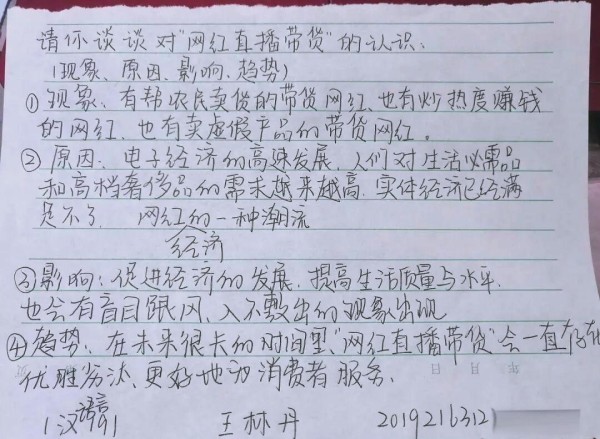 请你谈谈对"网红直播带货"的认识.
(现象、原因、影响、趋势)
①现象:有帮农民卖货的带货网红、也有炒热度赚钱
的网红、也有卖虚假产品的带货网红。
②原因:电子经济的高速发展、人们对生活必需品
和高档奢侈品的需求越来越高.实体经济已经满
足不了、网红的一种潮流
经济
③影响:促进经济的发展、提高生活质量与水平.
也会有盲目跟风、入不敷出的现象出现
④趋势:在未来很长的时间里、"网红直播带货"会一直存在
优胜劣汰、更好地为消费者服务、
年 月 日
(汉语言) 王林丹 2019216312